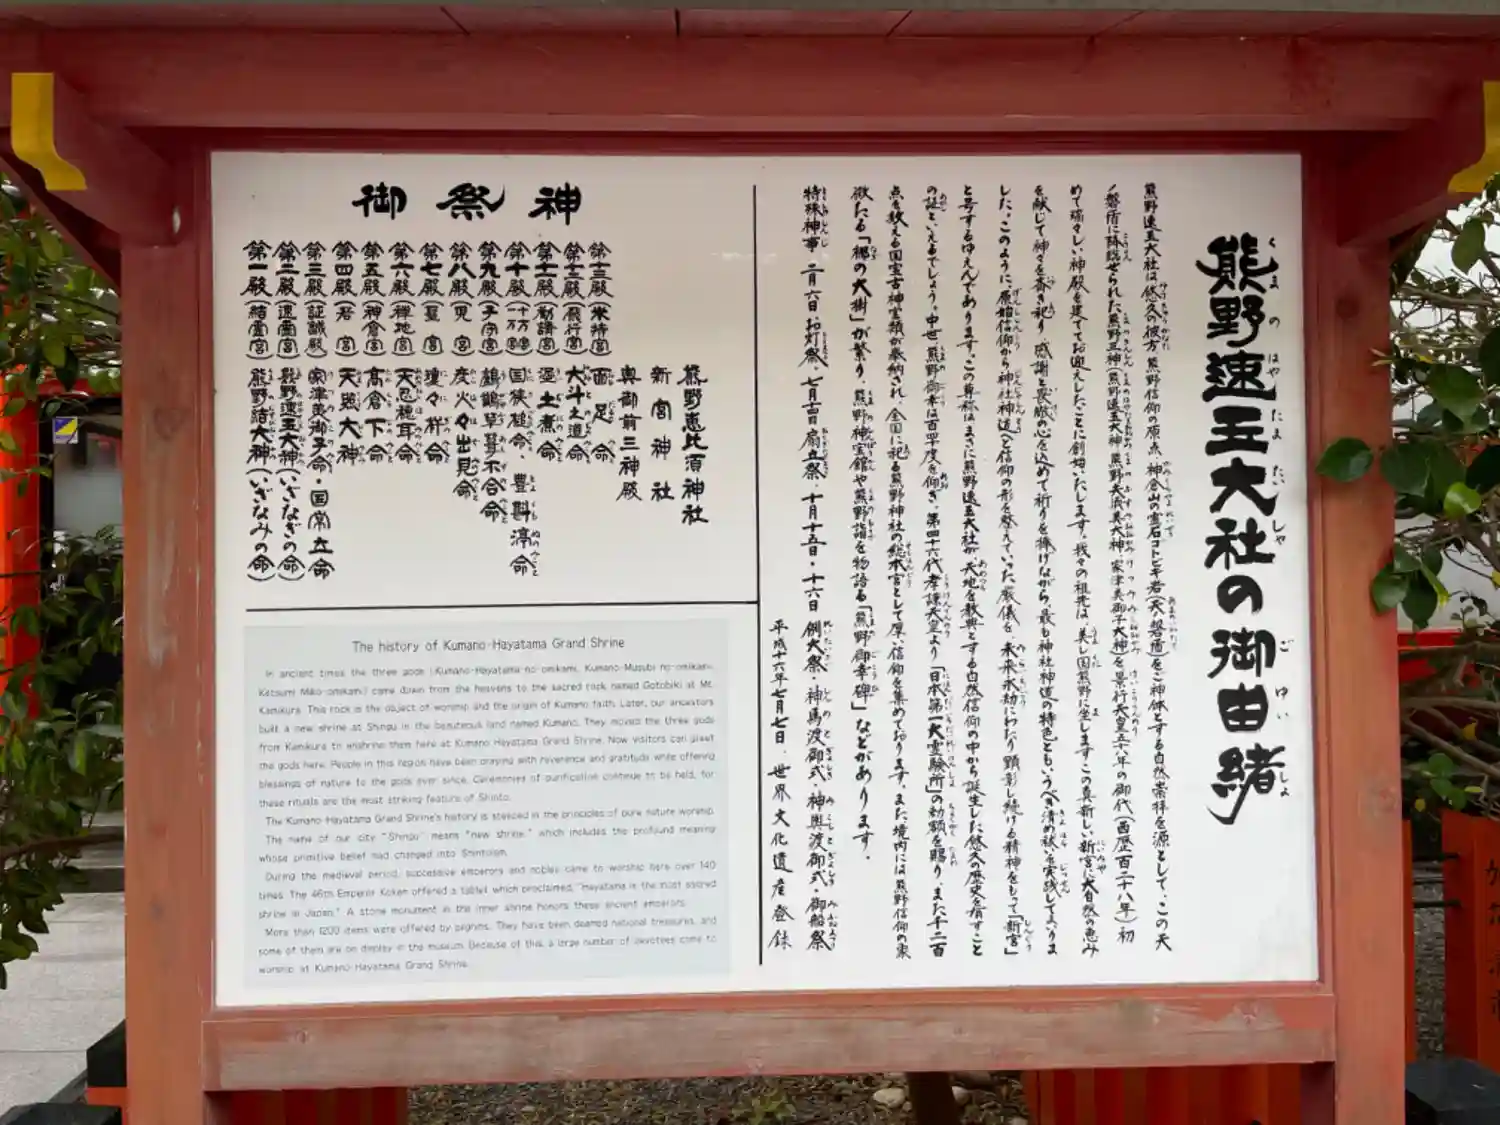 熊野速玉大社の御由緒
熊野速玉大社は悠久の彼方、熊野信仰の原点、神倉山の霊石ゴトビキ岩(天ノ磐盾)をご神体とする自然崇拝を源として、この天
ノ磐盾に降臨せられた熊野三神(熊野速玉大神・熊野夫須美大神・家津美御子大神)を景行天皇五十八年の御代(西歴百二十八年)初
めて瑞々しい神殿を建ててお迎えしたことに創始いたします。我々の祖先は、美し国熊野に坐しますこの真新しい新宮に大自然の恵み
を献じて神々を斎き祀り、感謝と畏敬の心を込めて祈りを捧げながら、最も神社神道の特色ともいうべき清め祓いを実践してまいりま
した。このように、原始信仰から神社神道へと信仰の形を整えていった厳儀を、未来永劫にわたり顕彰し続ける精神をもって「新宮」
と号するゆえんであります。この尊称はまさに熊野速玉大社が、天地を教典とする自然信仰の中から誕生した悠久の歴史を有すこと
の証といえるでしょう。中世、熊野御幸は百四十度を仰ぎ、第四十六代孝謙天皇より「日本第一大霊験所」の勅額を賜り、また千二百
点を数える国宝古神宝類が奉納され、全国に祀る熊野神社の総本宮として厚い信仰を集めております。また境内には熊野信仰の象
徴たる「梛の大樹」が繁り、熊野神宝館や熊野詣を物語る「熊野御幸碑」などがあります。
特殊神事 二月六日・お灯祭、七月十四日・扇立祭、十月十五日・十六日 例大祭・神馬渡御式・神輿渡御式・御船祭
平成十六年七月七日・世界文化遺産登録
御祭神
第一殿(結霊宮) 熊野結大神(いざなみの命)
第二殿(速霊宮) 熊野速玉大神(いざなぎの命)
第三殿(証誠殿) 家津美御子命・国常立命
第四殿(若宮) 天照大神
第五殿(神倉宮) 高倉下命
第六殿(禅地宮) 天忍穂耳命
第七殿(聖宮) 瓊々杵命
第八殿(児宮) 彦火々出見命
第九殿(子守宮) 鵜鶿草葺不合命
第十殿(一万宮・十万宮) 国狭槌命、豊斟渟命
第十一殿(勧請宮) 泥土煮命
第十二殿(飛行宮) 大斗之道命
第十三殿(米持宮) 面足命
奥御前三神殿
新宮神社
熊野恵比須神社
The history of Kumano-Hayatama Grand Shrine
In ancient times the three gods (Kumano-Hayatama-no-omikami, Kumano-Musubi-no-omikami,
Ketsumi Miko-omikami) came down from the heavens to the sacred rock named Gotobiki at Mt.
Kamikura. This rock is the object of worship and the origin of Kumano faith. Later, our ancestors
built a new shrine at Shingu in the beauteous land named Kumano. They moved the three gods
from Kamikura to enshrine them here at Kumano Hayatama Grand Shrine. Now visitors can greet
the gods here. People in this region have been praying with reverence and gratitude while offering
blessings of nature to the gods ever since. Ceremonies of purification continue to be held, for
these rituals are the most striking feature of Shinto.
The Kumano-Hayatama Grand Shrine's history is steeped in the principles of pure nature worship.
The name of our city "Shingu" means "new shrine," which includes the profound meaning
whose primitive belief had changed into Shintoism.
During the medieval period, successive emperors and nobles came to worship here over 140
times. The 46th Emperor Koken offered a tablet which proclaimed, "Hayatama is the most sacred
shrine in Japan." A stone monument in the inner shrine honors these ancient emperors.
More than 1200 items were offered by pilgrims. They have been deemed national treasures, and
some of them are on display in the museum. Because of this, a large number of devotees come to
worship at Kumano-Hayatama Grand Shrine.